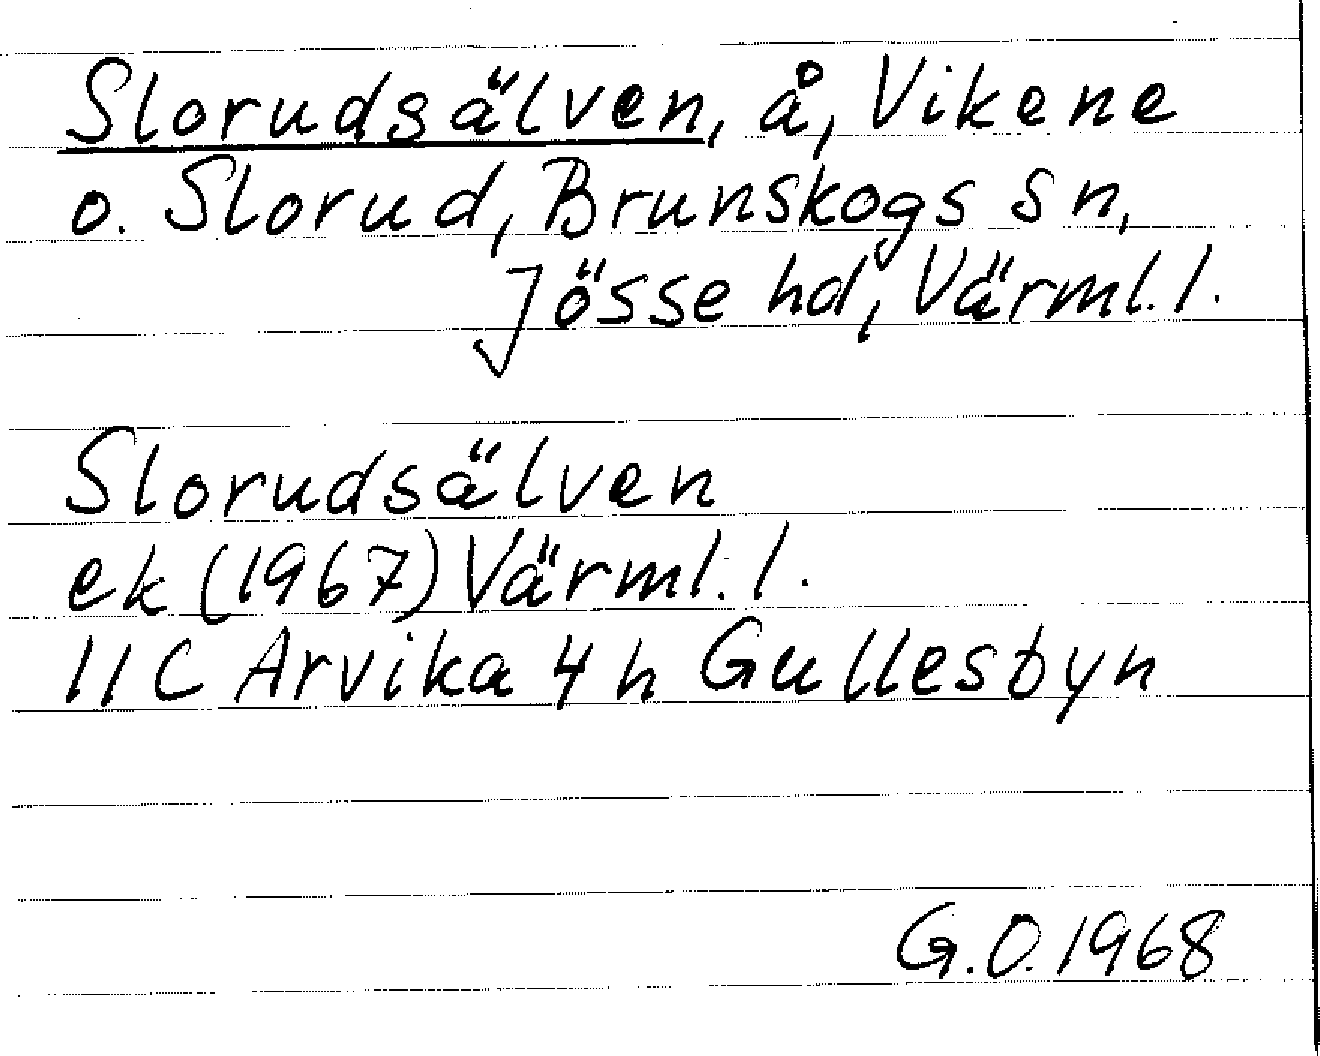 Slorudsälven, å, Vikene
o. Slorud, Brunskogs sn,
Jösse hd, Värml. l.
Slorudsälven
ek (1967) Värml. l.
11C Arvika 4h Gullesbyn
G.O. 1968